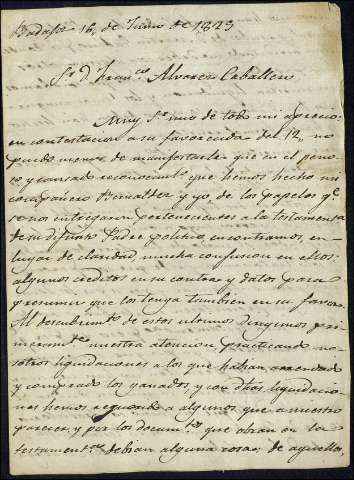 Badajoz 16, de Junio de 1823
Sr. D. Franco. Alvarez Caballero
Muy Sr. mio de todo mi aprecio:
en contestacion a su favorecida del 12, no
puedo menos de manifestarle que en el peno-
so y cansado reconocimto. que hemos hecho mi
compañero y yo, de los papeles qe.
se nos entregaron pertenecientes a la testamenta
de su difunto Padre politico encontramos, en
lugar de claridad, mucha confusion en ellos:
algunos creditos en su contra y datos para
presumir que los tenga tambien en su favor.
Al descubrimto. de estos ultimos dirigimos pri-
meramte. nuestra atencion practicando no-
sotros liquidaciones a los que habian arrendado
y comprado los ganados, y con dhas liquidacio-
nes hemos a algunos que a nuestro
parecer, y por los documtos. que obran en la
testamenta. debian alguna cosa; de aquellos,